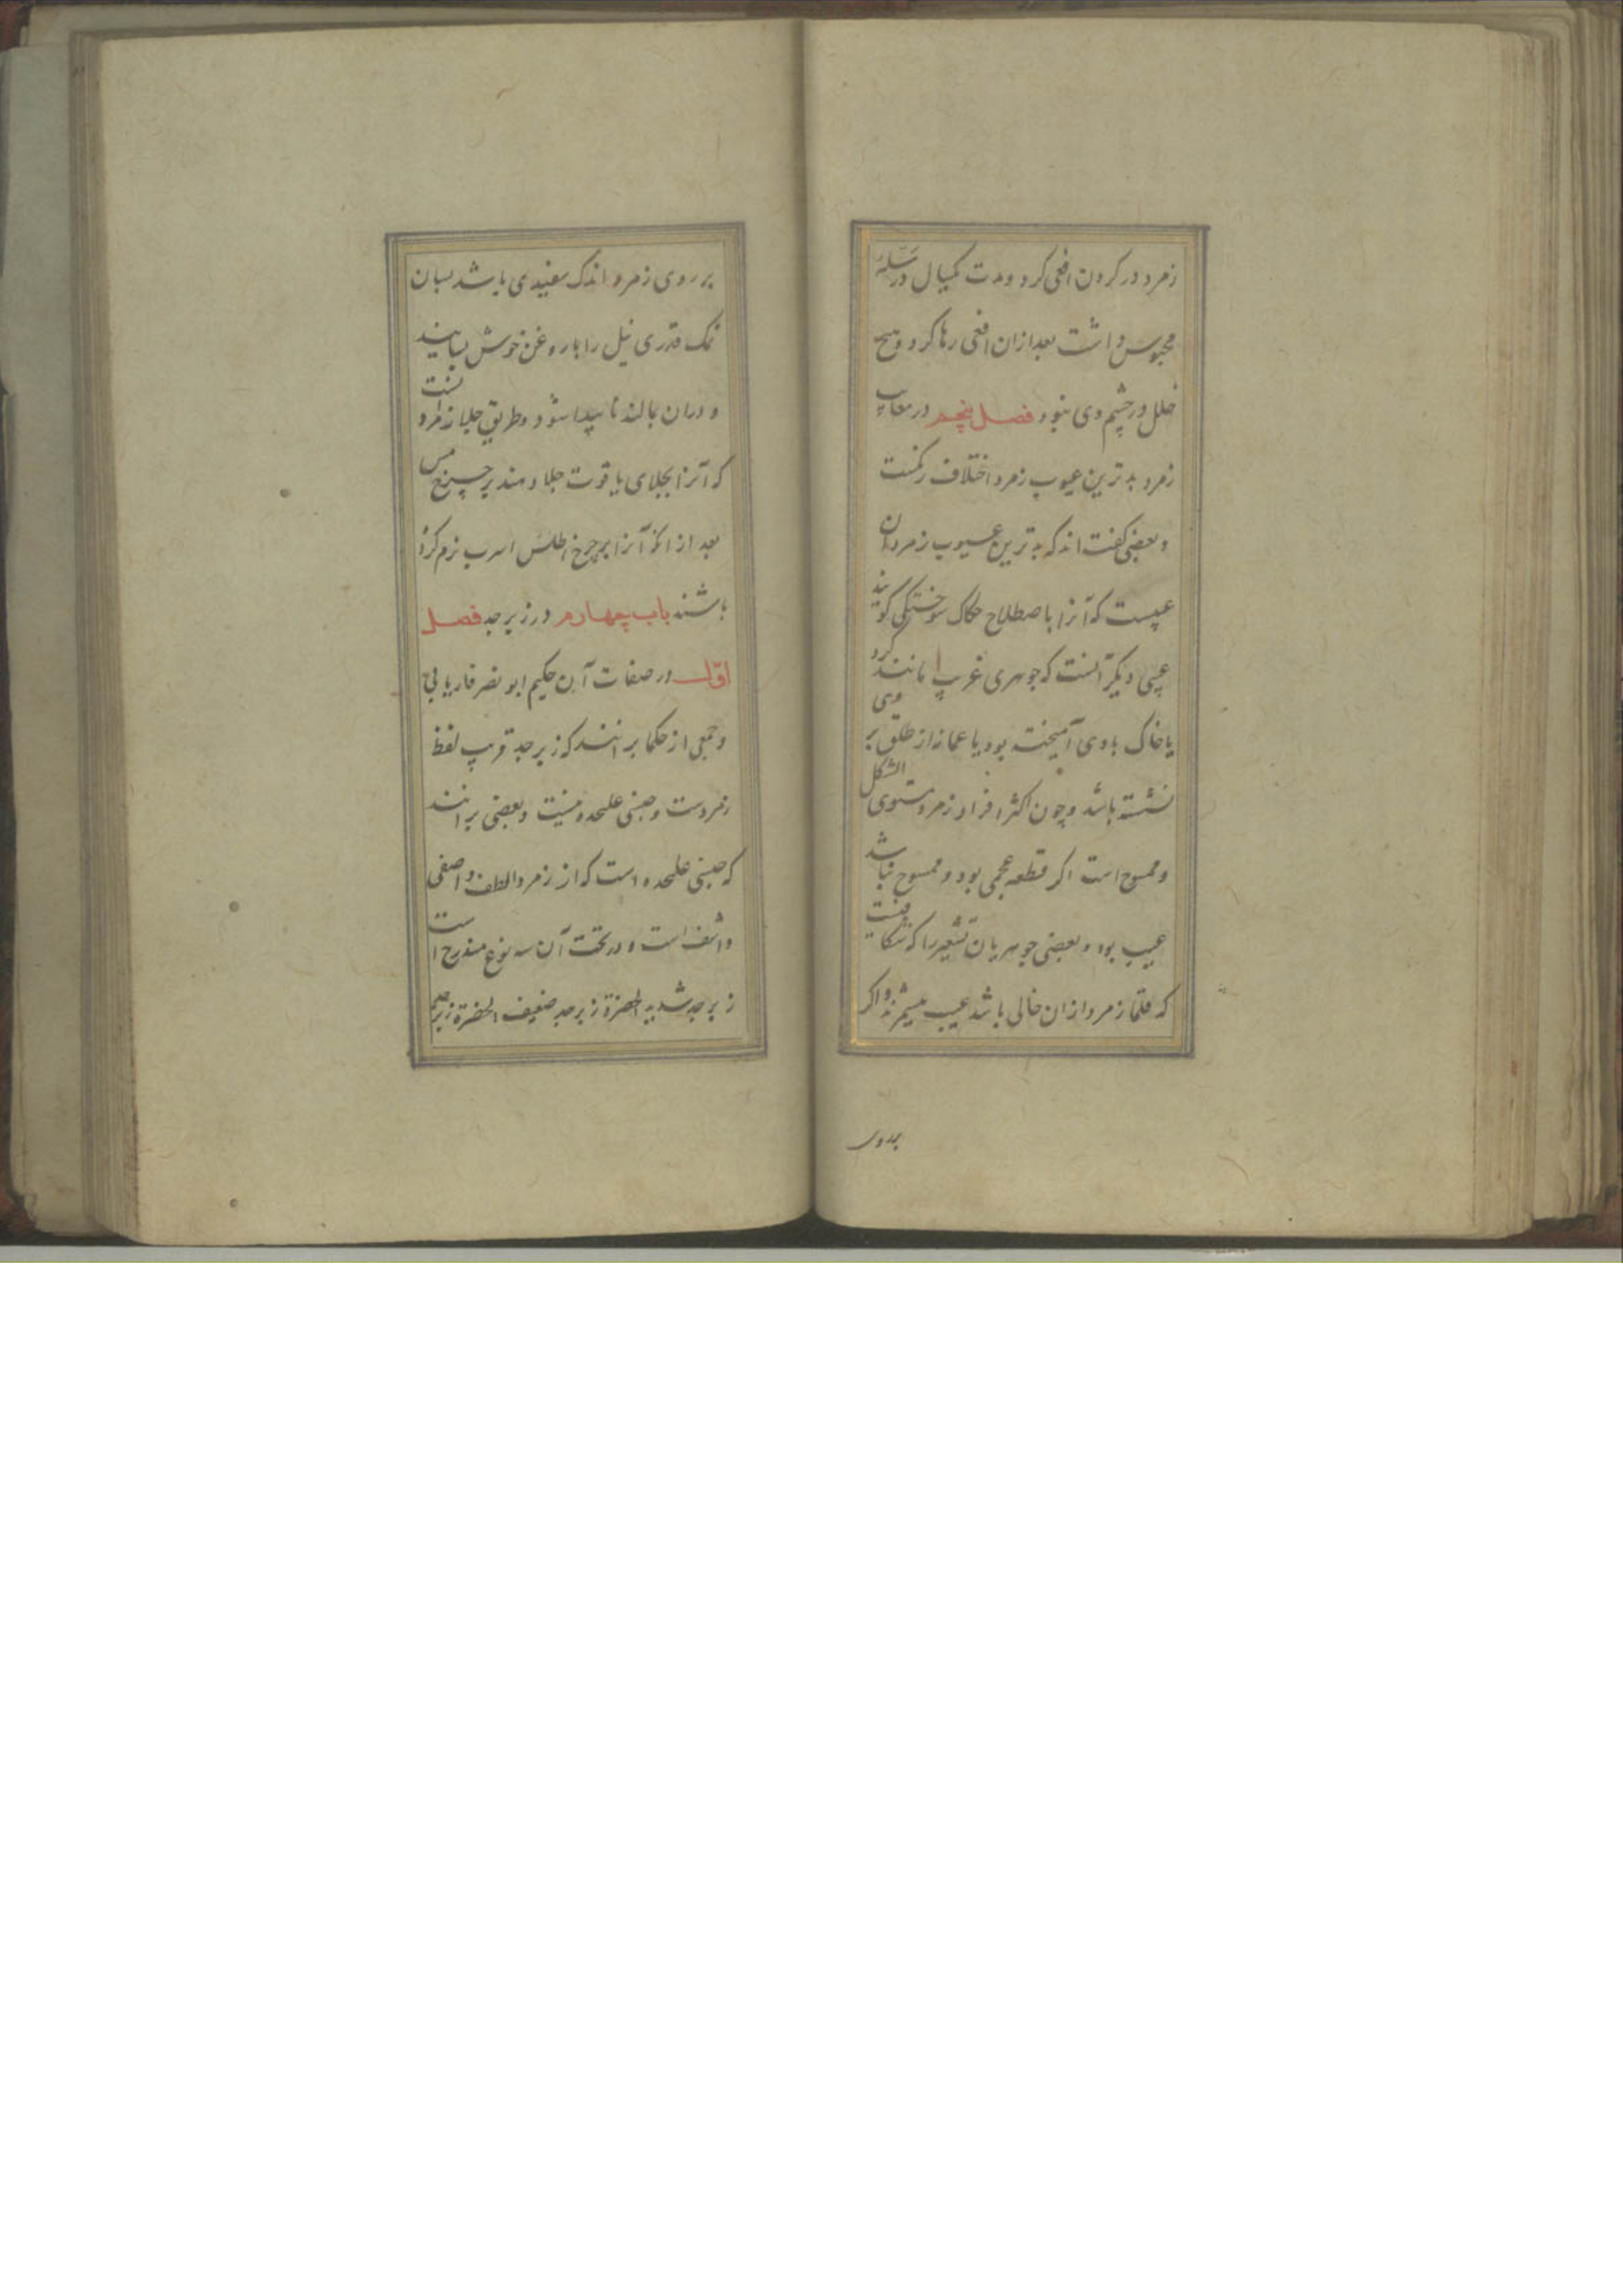 زمرد در کردن افعی کرد و مدت یکسال در سله
محبوس داشت بعد ازان افعی رها کرد و هیچ
خلل در چشم وی نبود فصل پنجم در معایب
زمرد بدترین عیوب زمرد اختلاف رنکست
و بعضی کفته اند که بدترین عیوب زمرد ان
عیبست که آنرا باصطلاح حکاک سوختکی کویند
عیبی دیکر آنست که جوهری غریب مانند کرد
یا خاک با وی آمیخته بود یا غمازاز طلق بر وی
نشسته باشد و چون اکثر افراد زمرد مستوی الشکل
و ممسوح است اکر قطعه عجمی بود و ممسوح نباشد
عیب بود و بعضی جوهریان تشعیر را که شکافیست
که قلما زمرد ازان خالی باشد عیب میشمرند و اکر
بر روی
بر روی زمرد اندک سفیدی باشد بسان
نمک قدری نیل را با روغن خوش بسایند
و دران بمالند ناپیدا شود و طریق جلا زمرد آنست
که آنرا بجلای یاقوت جلا دهند بر چرخ مس
بعد از انکه آنرا بر چرخ اطلس اسرب نرم کرده
باشند باب چهارم در زبرجد فصل
اول در صفات آن حکیم ابو نصر فاریابی
و جمعی از حکما برانند که زبرجد قریب لفظ
زمردست و جنسی علیحده نیست و بعضی برانند
که جنسی علیحده است که از زمرد الطف و اصفی
و اشف است و در تحت آن سه نوع مندرج است
زبرجد شدید الخضرة زبرجد ضعیف الخضرة زبرجد